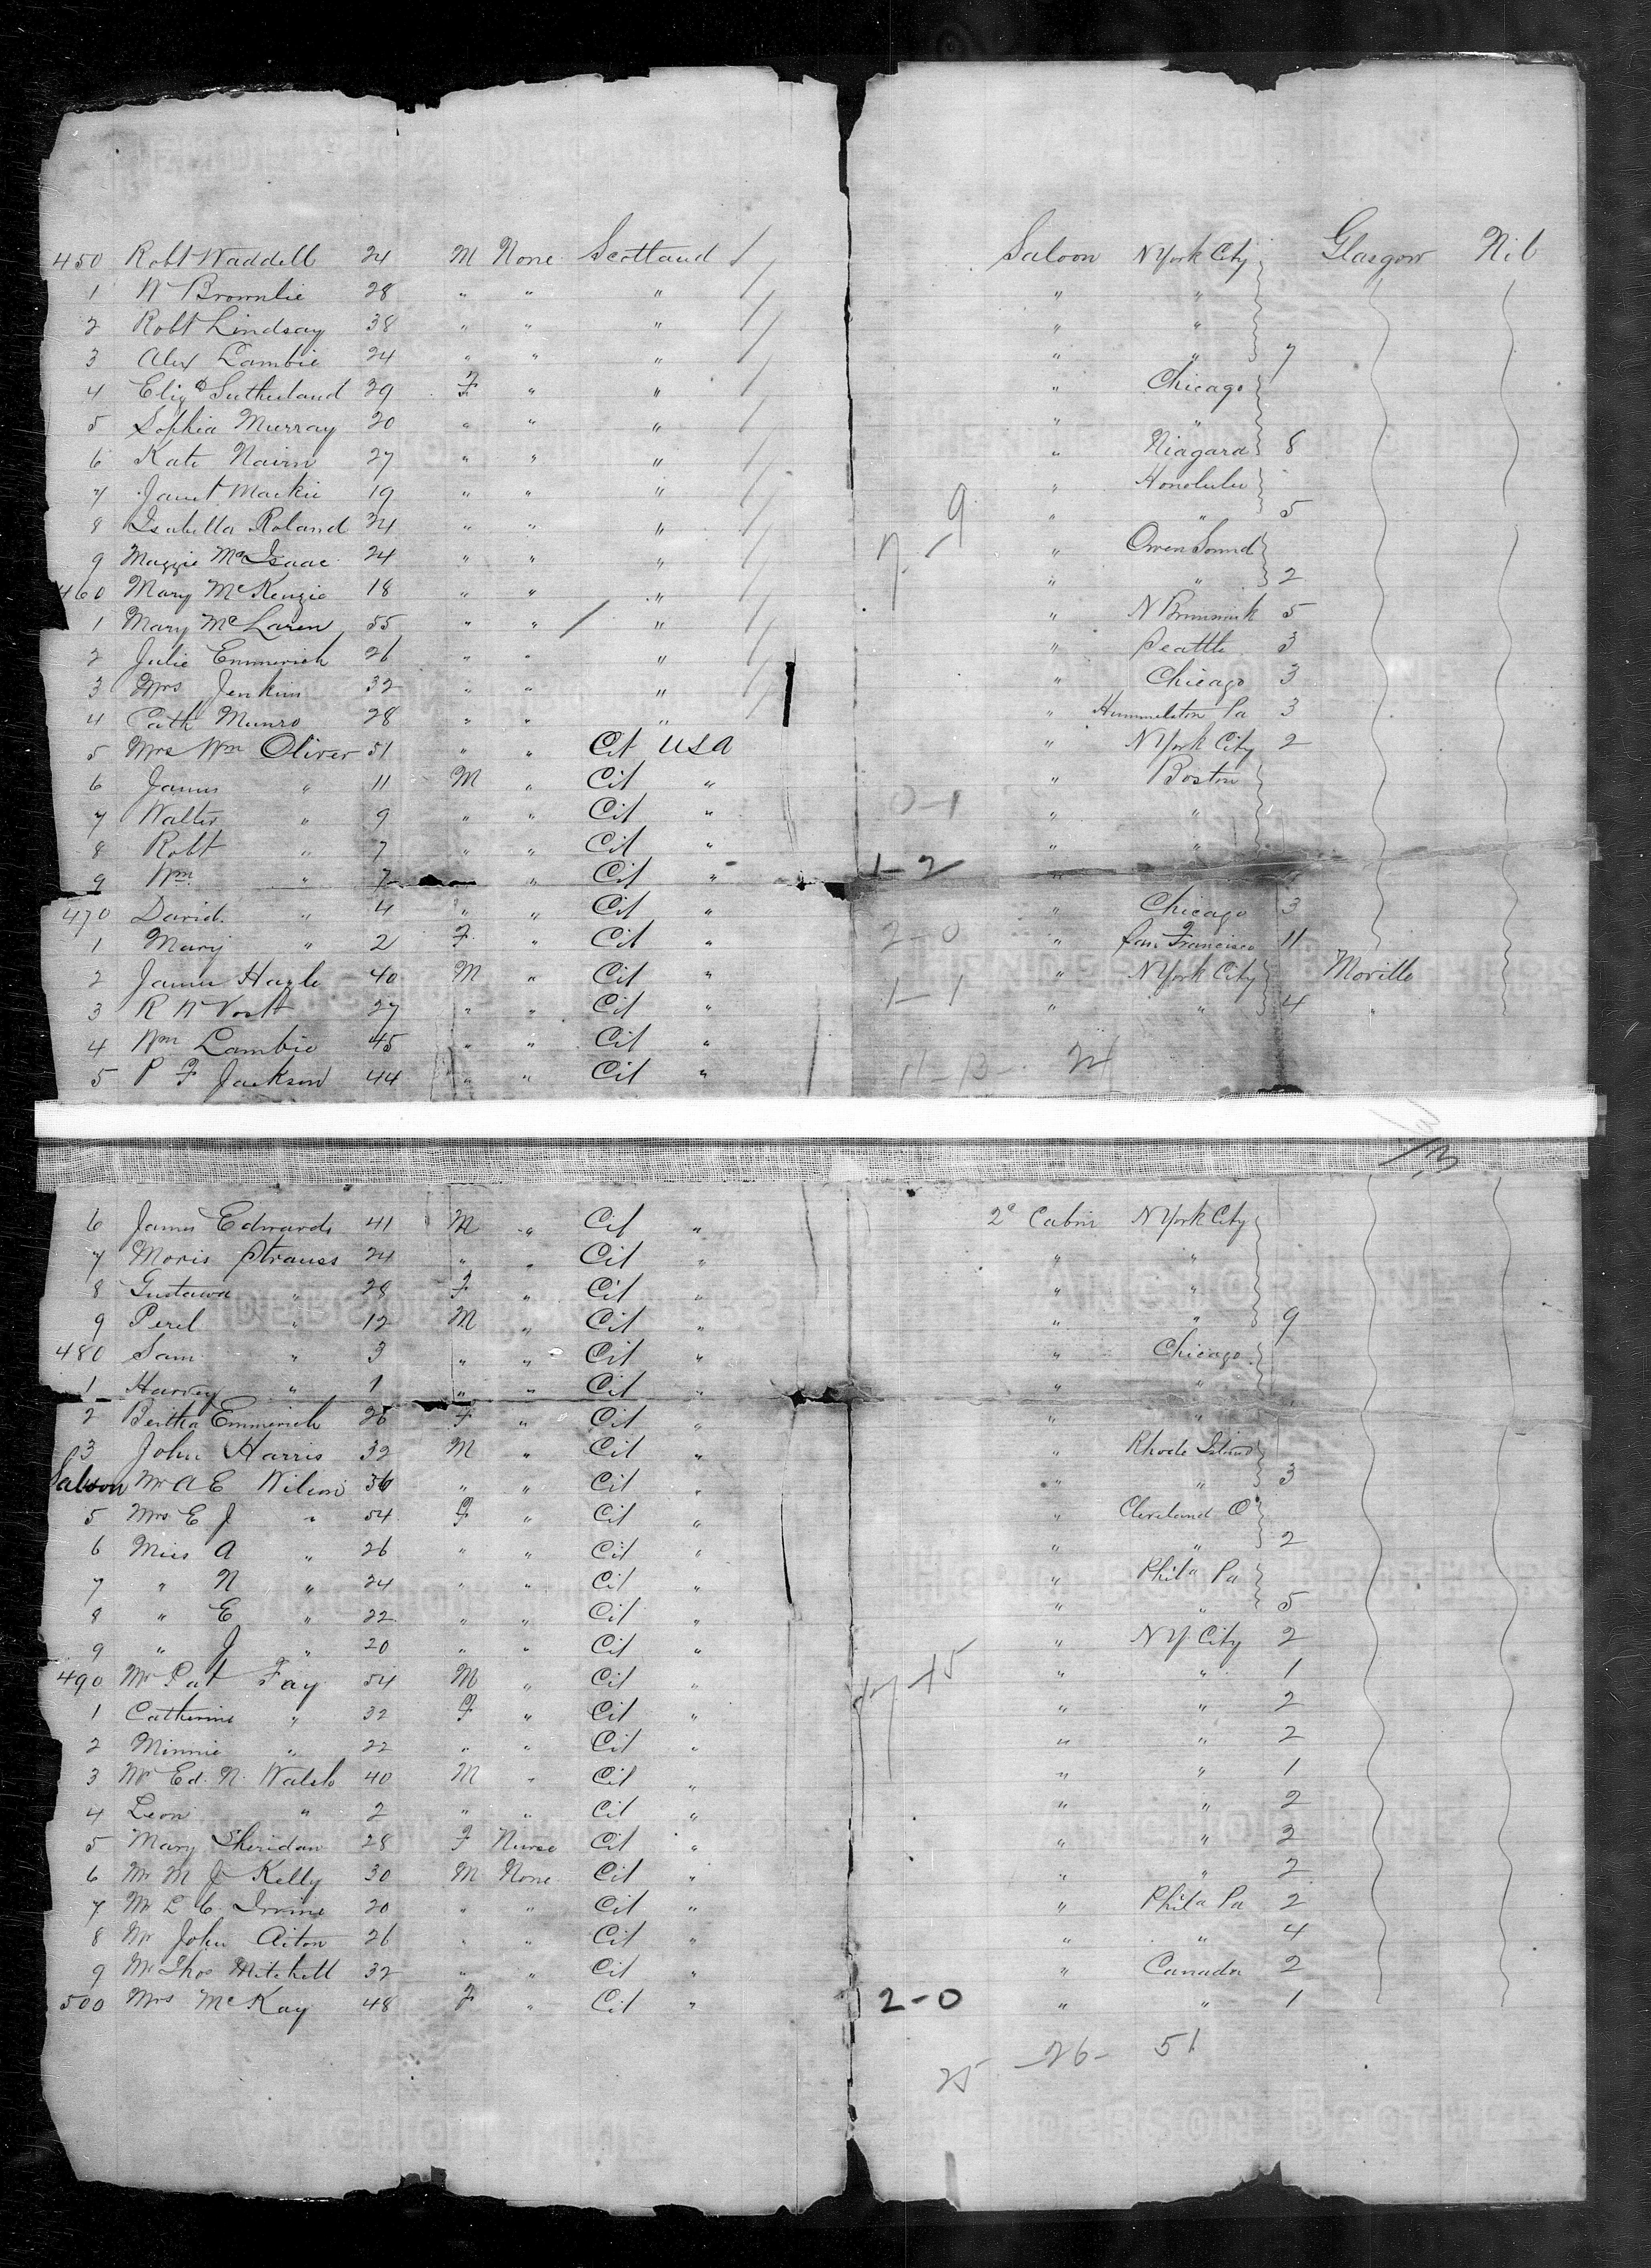 450 Robt Waddell 24 M None Scotland
1 W Brownlie 28 " " "
2 Robt Lindsay 38 " " "
3 Alex Lambie 24 " " "
4 Eliz Sutherland 29 F " "
5 Sophia Murray 20 " " "
6 Kate Nairn 27 " " "
7 Janet Mackie 19 " " "
8 Isabella Roland 34 " " "
9 Maggie McIsaac 24 " " "
460 Mary McKenzie 18 " " "
1 Mary McLaren 55 " " "
2 Julie Emmerich 26 " " "
3 Mrs Jenkins 32 " " "
4 Cath Munro 28 " " "
5 Mrs Wm Oliver 51 " " Cit USA
6 James " 11 M " Cit "
7 Walter " 9 " " Cit "
8 Robt " 7 " " Cit "
9 Wm " 7 " Cit "
470 David " 4 " " Cit "
1 Mary " 2 F " Cit "
2 James Hazle 40 M " Cit "
3 R W Vost 27 " " Cit "
4 Wm Lambie 45 " " Cit "
5 P F Jackson 44 " " Cit "
6 James Edwards 41 M " Cit "
7 Moris Strauss 24 " " Cit "
8 Gustawa " 28 F " Cit "
9 Perel " 12 M " Cit "
480 Sam " 3 " " Cit "
1 Harvey " 1 " " Cit "
2 Bertha Emmerich 26 F " Cit "
3 John Harris 32 M " Cit "
Saloon Mr A E Wilson 36 " " Cit "
5 Mrs E J " 54 F " Cit "
6 Miss A " 26 " " Cit "
7 " N " 24 " " Cit "
8 " E " 22 " " Cit "
9 " J " 20 " " Cit "
490 Mr Pat Fay 54 M " Cit "
1 Catherine " 32 F " Cit "
2 Minnie " 22 " " Cit "
3 Mr Ed. N. Walsh 40 M " Cit "
4 Leon " 2 " " Cit "
5 Mary Sheridan 28 F Nurse Cit "
6 Mr M J Kelly 30 M None Cit "
7 Mr L C Irvine 20 " " Cit "
8 Mr John Aiton 26 " " Cit "
9 Mr Thos Mitchell 32 " " Cit "
500 Mrs McKay 48 F " Cit "
Saloon N York City Glasgow Nil
" "
" "
" " 7
" Chicago
" "
" Niagara 8
" Honolulu
" " 5
7-9
" Owen Sound
" " 2
" N Brunswick 5
" Seattle 3
" Chicago 3
" Hummelston Pa 3
" N York City 2
" Boston
0-1
" "
" "
1-2
" Chicago 3
2-0
" San Francisco 11
" N York City Moville
1-1
" " 4 "
11-13- 24
2d Cabin N York City
" "
" "
" " 9
" Chicago
" "
" "
" Rhode Island
" " 3
" Cleveland O
" " 2
" Phila Pa
" " 5
" N Y City 2
" " 1
" " 2
" " 2
" " 1
" " 2
" " 2
" " 2
" Phila Pa 2
" " 4
" Canada 2
2-0 " " 1
25 -26- 51